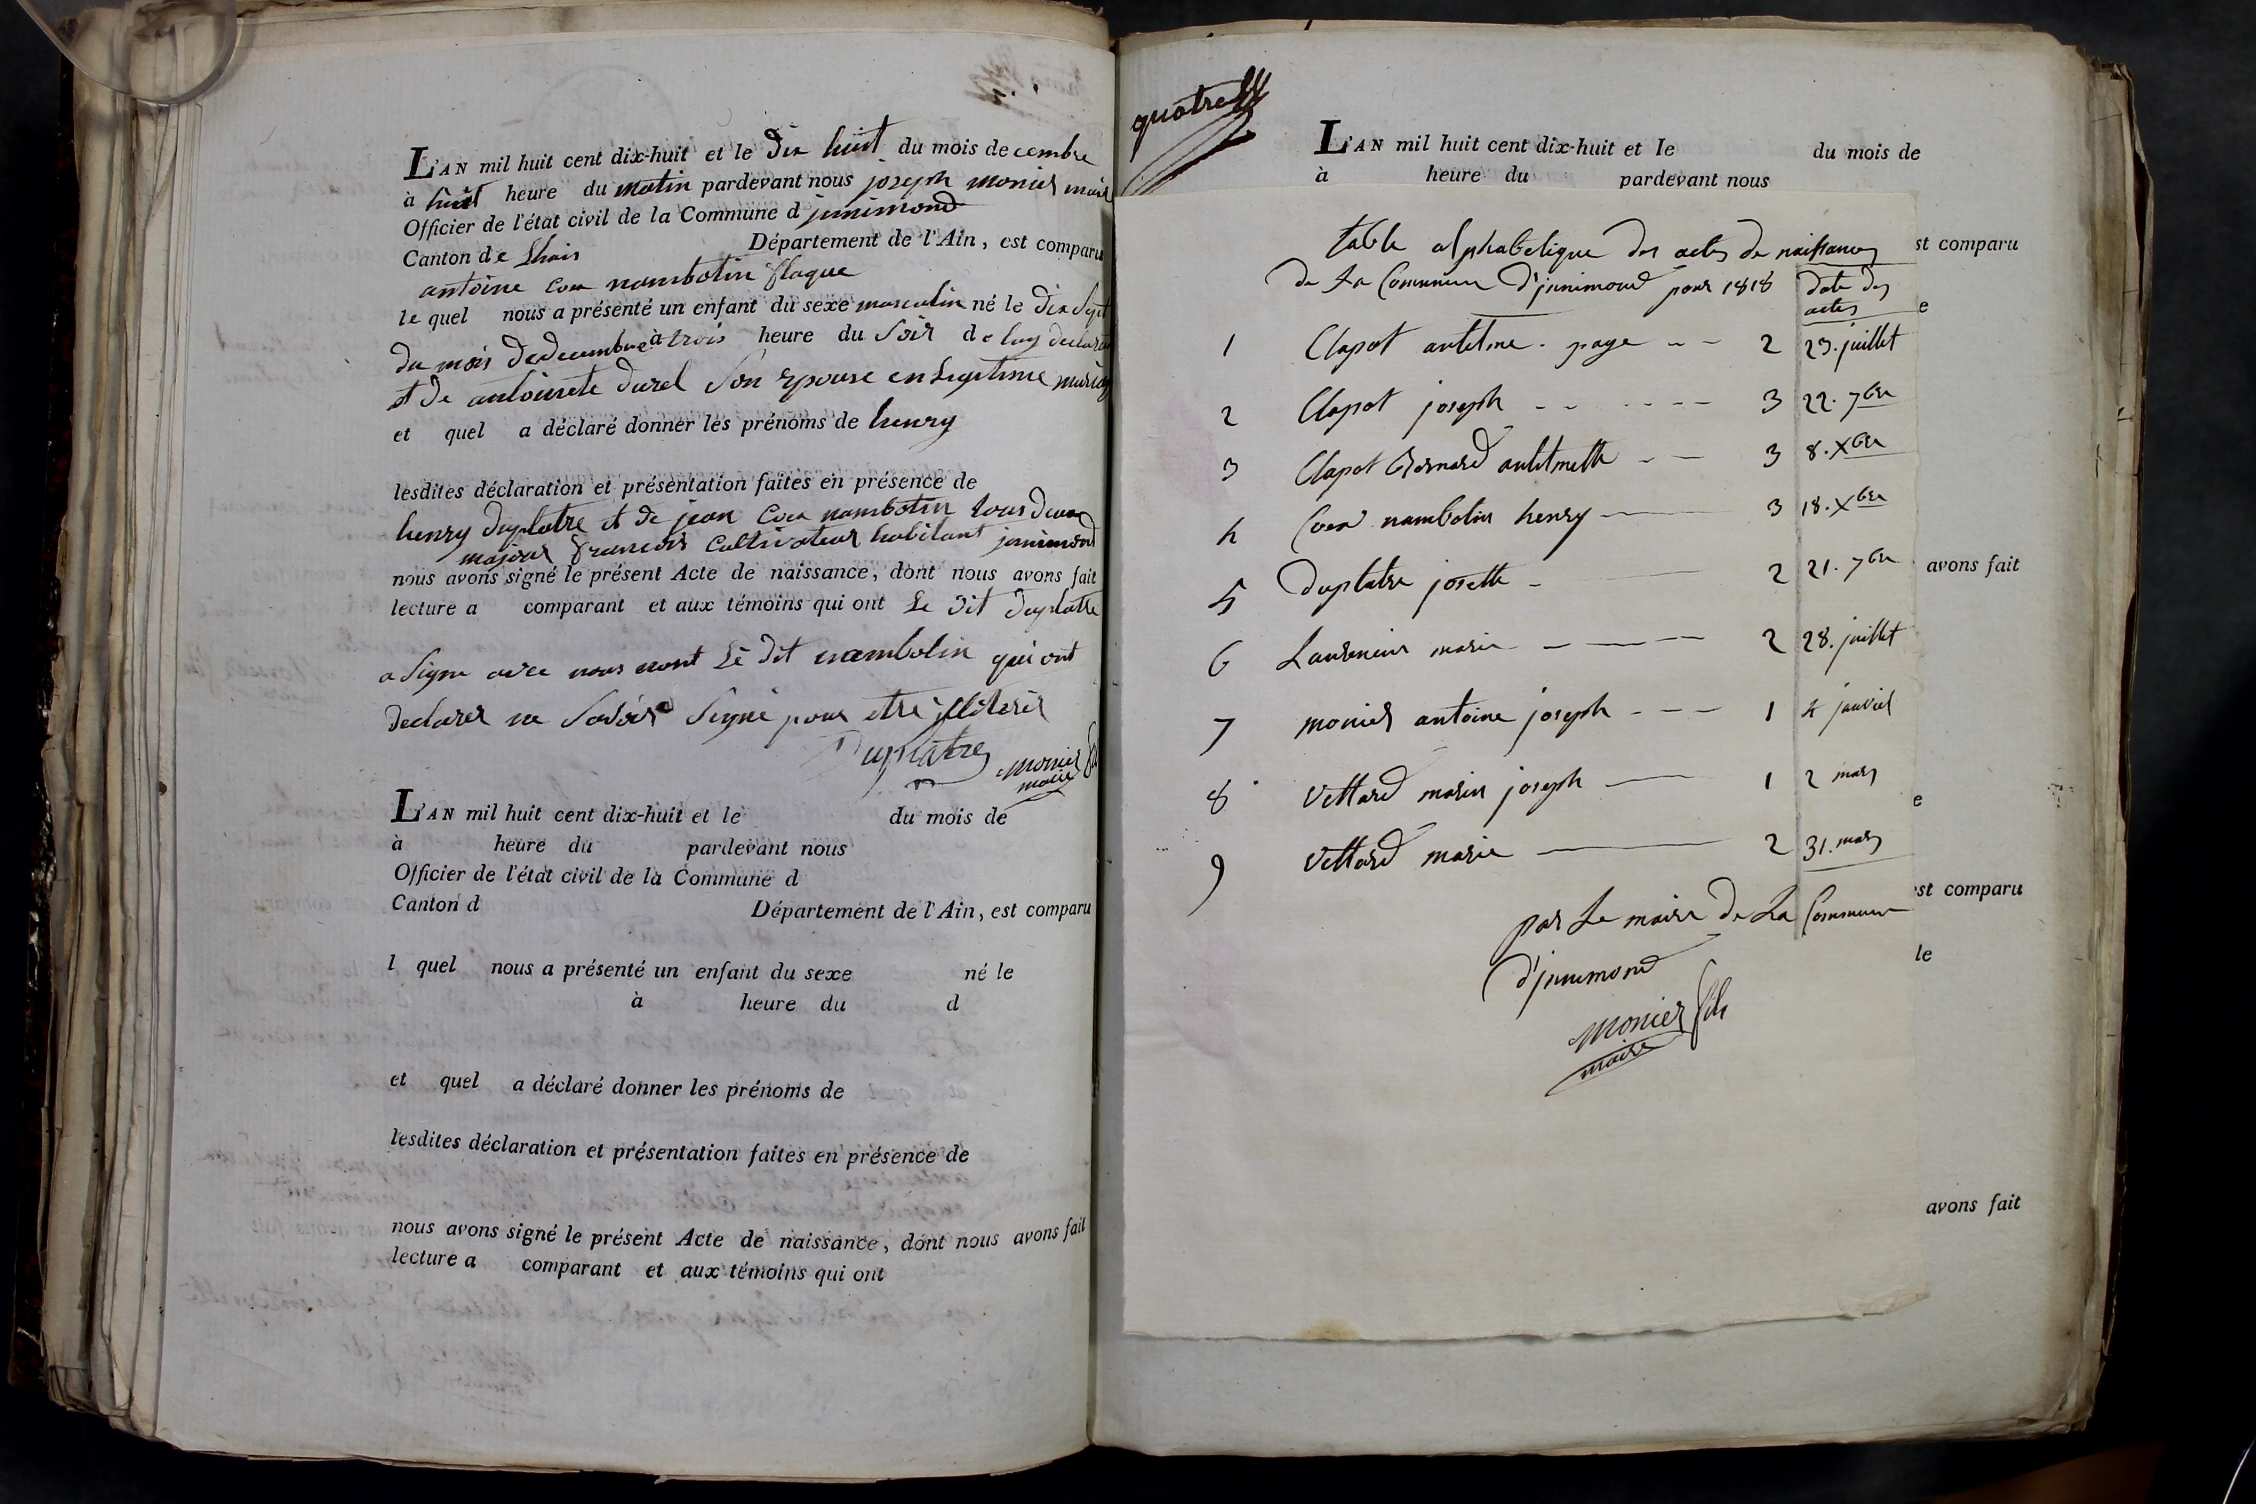 L'AN mil huit cent dix-huit et le dix huit du mois de cembre
à huit heure du matin pardevant nous joseph monier maire
Officier de l'état civil de la Commune d junimond
Canton de Lhuis Département de l'Ain, est comparu
antoine coux nambotin flaque
le quel nous a présenté un enfant du sexe masculin né le dix sept
du mois de decembre à trois heure du soir de luy declarant
et de antoinete durel son epouse en legitime mariage
et quel a déclaré donner les prénoms de henry
lesdites déclaration et présentation faites en présence de
henry duplatre et de jean coux nambotin tous deux
majeur francois cultivateur habitant junimond
nous avons signé le présent Acte de naissance, dont nous avons fait
lecture a comparant et aux témoins qui ont le dit duplatre
a signe avec nous nont le dit nambotin qui ont
declarer ne savoir signe pour etre
Duplatre monier fils
maire
L'AN mil huit cent dix-huit et le du mois de
à heure du pardevant nous
Officier de l'état civil de la Commune d
Canton d Département de l'Ain, est comparu
l quel nous a présenté un enfant du sexe né le
à heure du d
et quel a déclaré donner les prénoms de
lesdites déclaration et présentation faites en présence de
nous avons signé le présent Acte de naissance, dont nous avons fait
lecture a comparant et aux témoins qui ont
quatre
L'AN mil huit cent dix-huit et le du mois de
à heure du pardevant nous
table alphabetique des actes de naissances
st comparu
de La Commune d'junimond pour 1818 date des
actes
e
1 Clapot antelme . page - - 2 23. juillet
2 Clapot joseph - - - - - - 3 22. 7bre
3 Clapot Bernard antelmette - - 3 8. Xbre
4 Coux nambotin henry - 3 18. Xbre
5 Duplatre josette - 2 21. 7bre
avons fait
6 Laurencin marie - - - 2 28. juillet
7 monier antoine joseph - - - 1 4 janvier
8 Vettard marin joseph - 1 2 mars
e
9 Vettard marie - 2 31. mars
st comparu
par Le maire de La Commune
le
d'junimond
monier fils
maire
avons fait